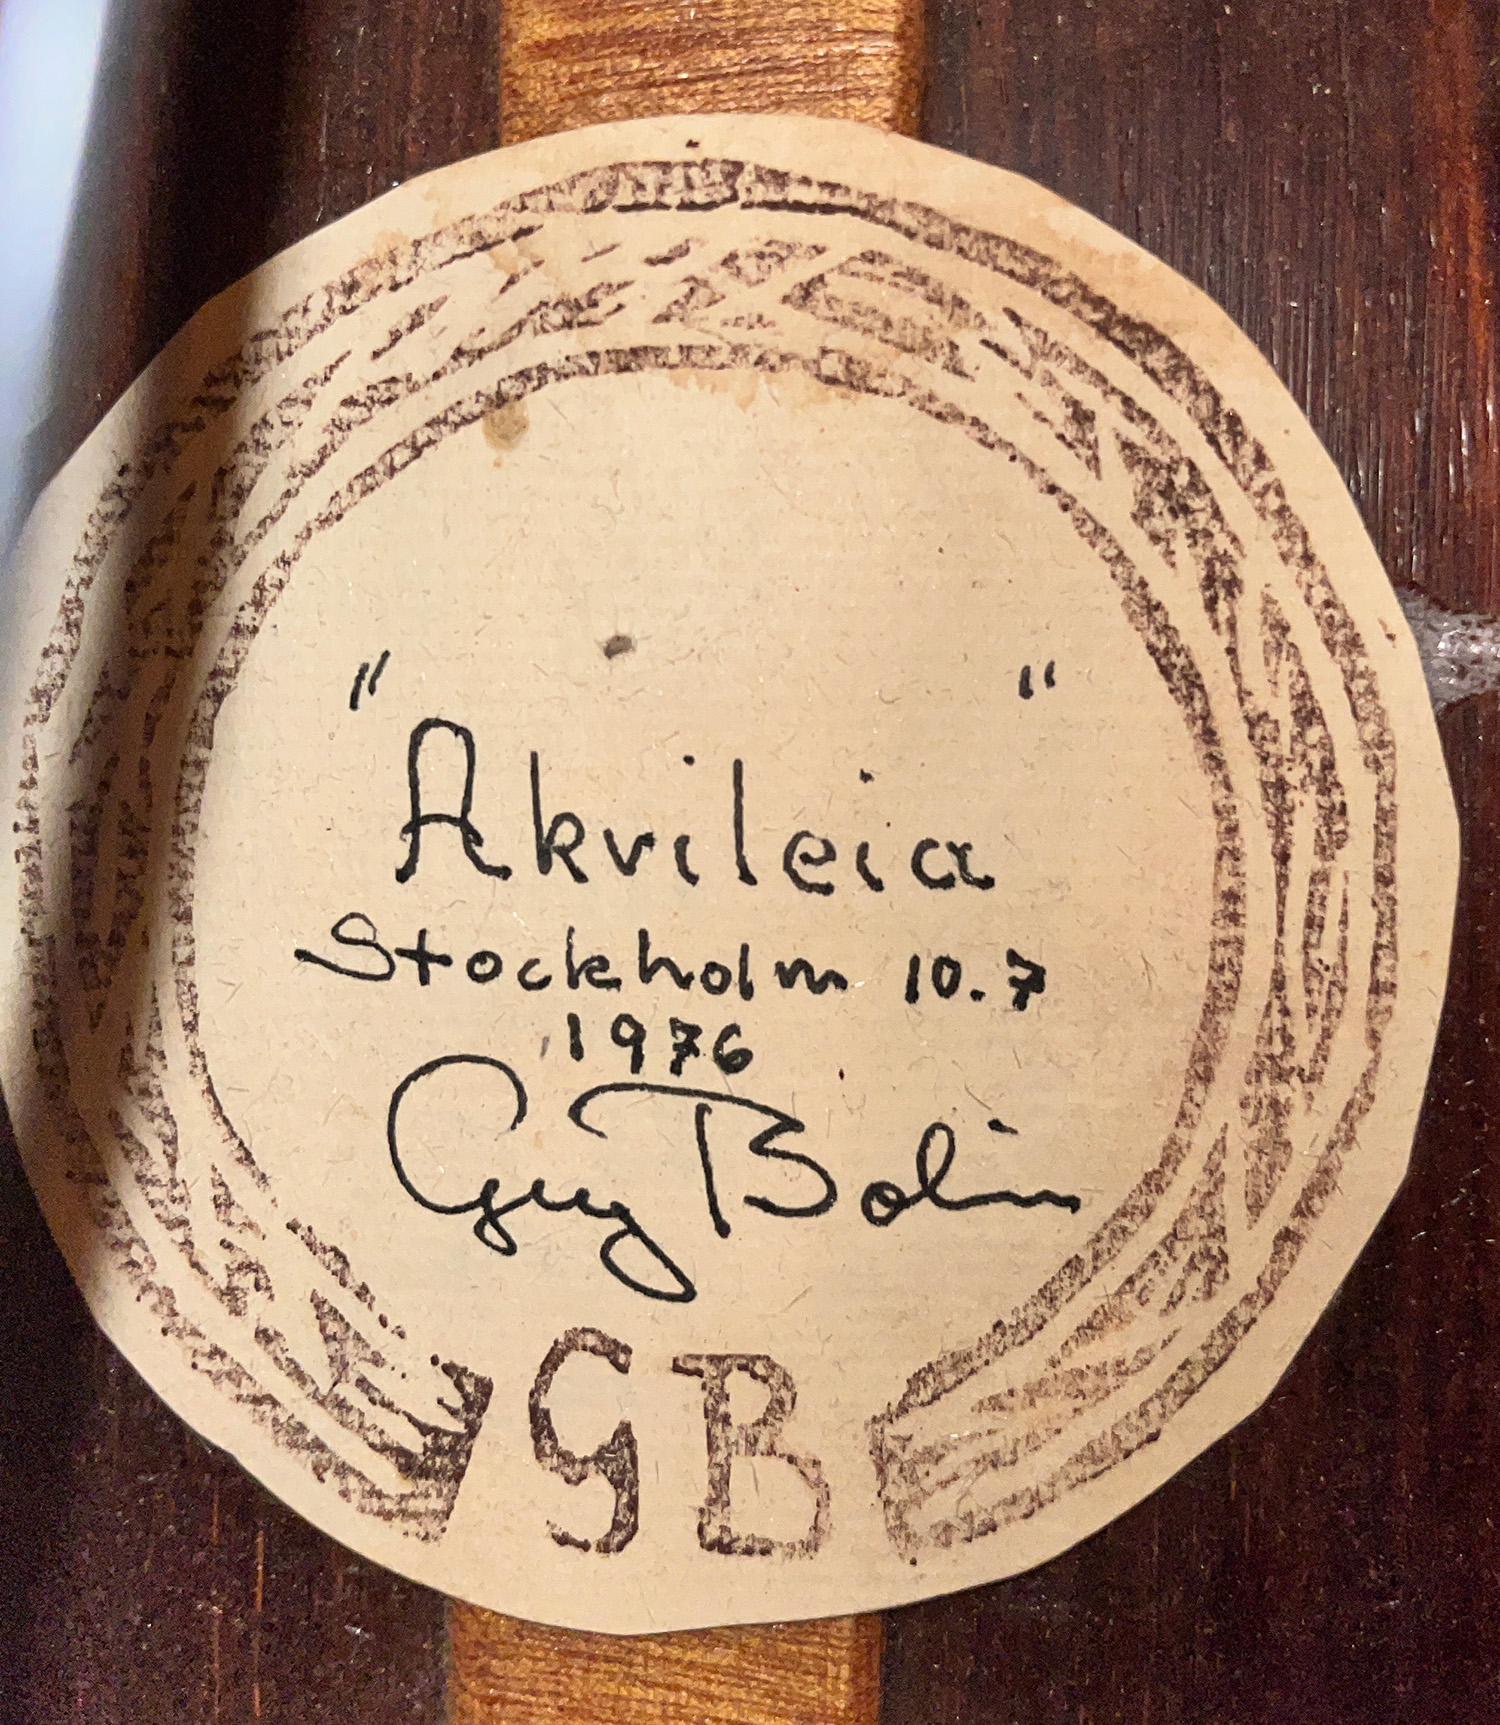 "Akvileia"
Stockholm 10.7
1976
Guy Bolin
GB